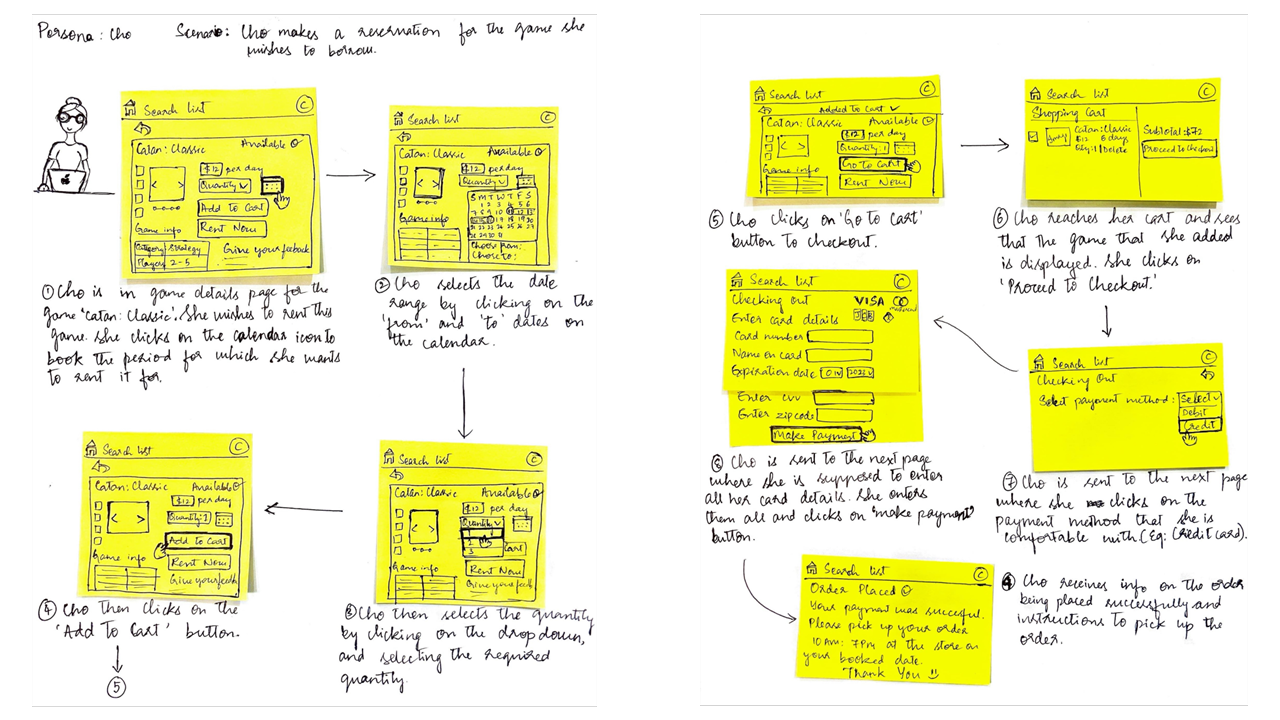 Persona: Cho Scenario: Cho makes a reservation for the game she
wishes to borrow.
Search list C
Catan: Classic Available
$12 per day
< > Quantity
Add to Cart
Game info Rent Now
Category Strategy Give your feeback
Players 2-5
① Cho is in game details page for the
game 'Catan: Classic'. She wishes to rent this
game. She clicks on the calendar icon to
book the period for which she wants
to rent it for.
Search list C
Catan: Classic Available
$12 per day
< > Quantity
S M T W T F S
1 2 3 4 5 6
7 8 9 10 11 12 13
14 15 16 17 18 19 20
21 22 23 24 25 26 27
28 29 30 31
Game info
Choose from:
Chose to:
② Cho selects the date
range by clicking on the
'from' and 'to' dates on
the calendar.
Search list C
Catan: Classic Available
$12 per day
< > Quantity
2
3 Cart
Game info Rent Now
Give your feedb
③ Cho then selects the quantity
by clicking on the dropdown,
and selecting the required
quantity.
Search list C
Catan: Classic Available
$12 per day
< > Quantity: 1
Add to Cart
Game info Rent Now
Give your feedb
④ Cho then clicks on the
'Add To Cart' button.
⑤
Search list C
Added To Cart ✓
Catan: Classic Available
$12 per day
< > Quantity: 1
Go to Cart
Game info Rent Now
⑤ Cho clicks on 'Go to Cart'
button to checkout.
Search list C
Shopping Cart
Catan: Classic
$12 6 days
Qty: 1 | Delete
Subtotal: $72
Proceed to Checkout
⑥ Cho reaches her cart and sees
that the game that she added
is displayed. She clicks on
'Proceed to Checkout.'
Search list C
Checking Out
Select payment method: Select
Debit
Credit
⑦ Cho is sent to the next page
where she clicks on the
payment method that she is
comfortable with (Eg: Credit card).
Search list C
Checking out VISA
Enter card details JCB
Card number
Name on card
Expiration date 01 2023
Enter CVV
Enter zipcode
Make Payment
⑧ Cho is sent to the next page
where she is supposed to enter
all her card details. She enters
them all and clicks on 'make payment'
button.
Search list C
Order Placed
Your payment was succesful.
Please pick up your order
10 AM: 7PM at the store on
your booked date.
Thank You
⑨ Cho receives info on the order
being placed successfully and
instructions to pick up the
order.